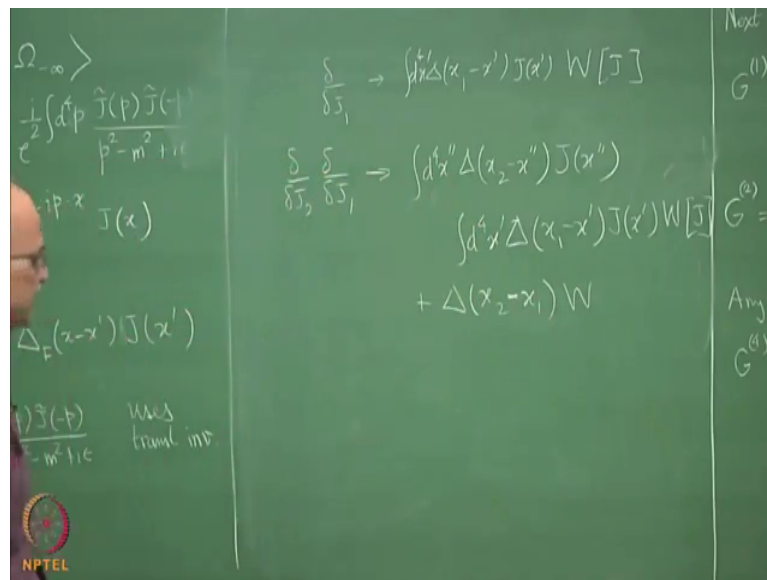 Ω₋∞ ⟩
e^{i/2 ∫d⁴p Ĵ(p) Ĵ(-p) / p² - m² + iϵ}
-ip·x J(x)
Δ_F(x-x') J(x')
) Ĵ(-p) / ² - m² + iϵ
uses
transl inv.
δ/δJ₁ → ∫d⁴x' Δ(x₁-x') J(x') W[J]
δ/δJ₂ δ/δJ₁ → ∫d⁴x'' Δ(x₂-x'') J(x'')
∫d⁴x' Δ(x₁-x') J(x') W[J]
+ Δ(x₂-x₁) W
Next
G⁽¹⁾
G⁽²⁾ =
Any
G⁽⁴⁾
NPTEL